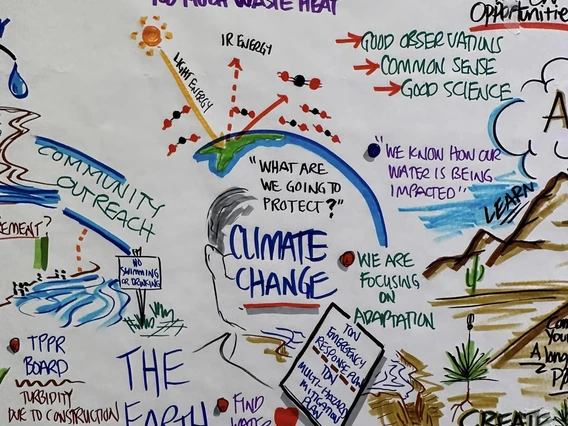 TOO MUCH WASTE HEAT
Opportunities
IR ENERGY
LIGHT ENERGY
GOOD OBSERVATIONS
COMMON SENSE
GOOD SCIENCE
COMMUNITY
OUTREACH
"WHAT ARE
WE GOING TO
PROTECT?"
"WE KNOW HOW OUR
WATER IS BEING
IMPACTED"
LEARN
NO
SWIMMING
OR DRINKING
CLIMATE
CHANGE
WE ARE
FOCUSING
ON
ADAPTATION
TON
EMERGENCY
RESPONSE PLAN
TON
MULTI-HAZARD
MITIGATION
PLAN
TPPR
BOARD
TURBIDITY
DUE TO CONSTRUCTION
THE
EARTH
FIND
WATER
CREATE